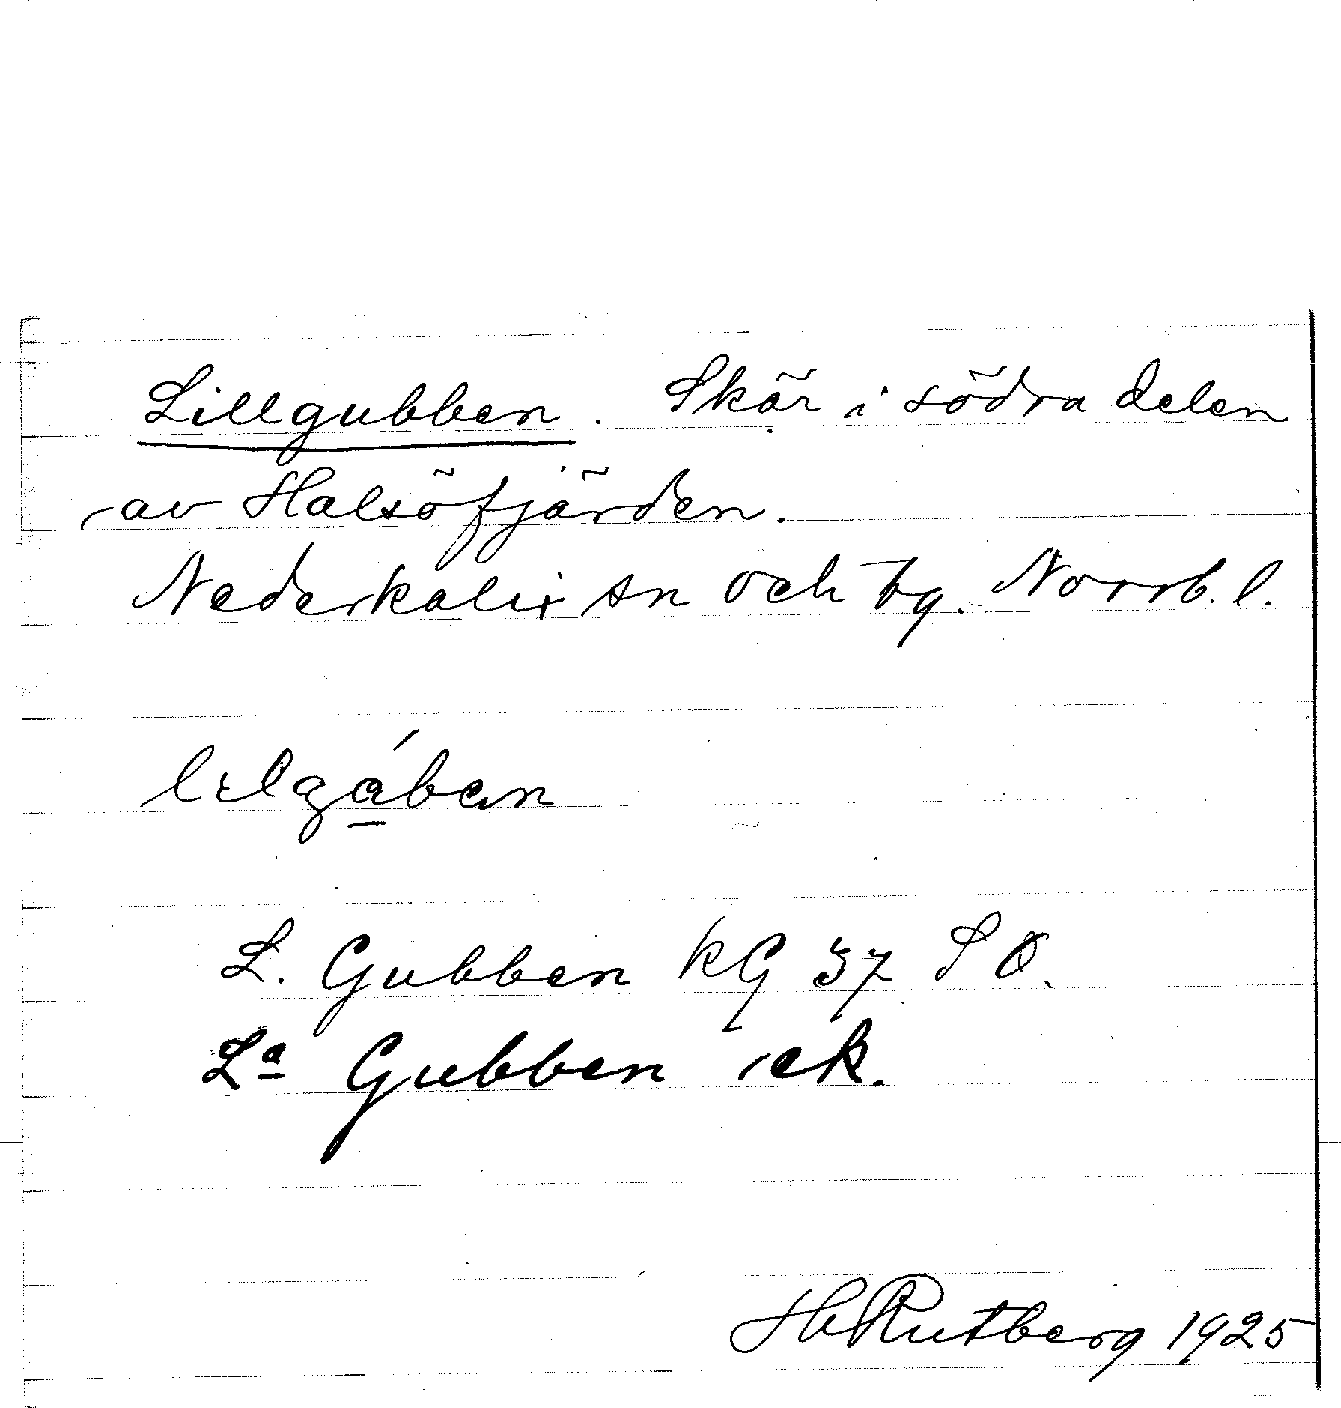 Lillgubben. Skär i södra delen
av Halsöfjärden.
Nederkalix sn och tg. Norrb. l.
L. Gubben kG 37 SO.
La Gubben ek.
HRutberg 1925